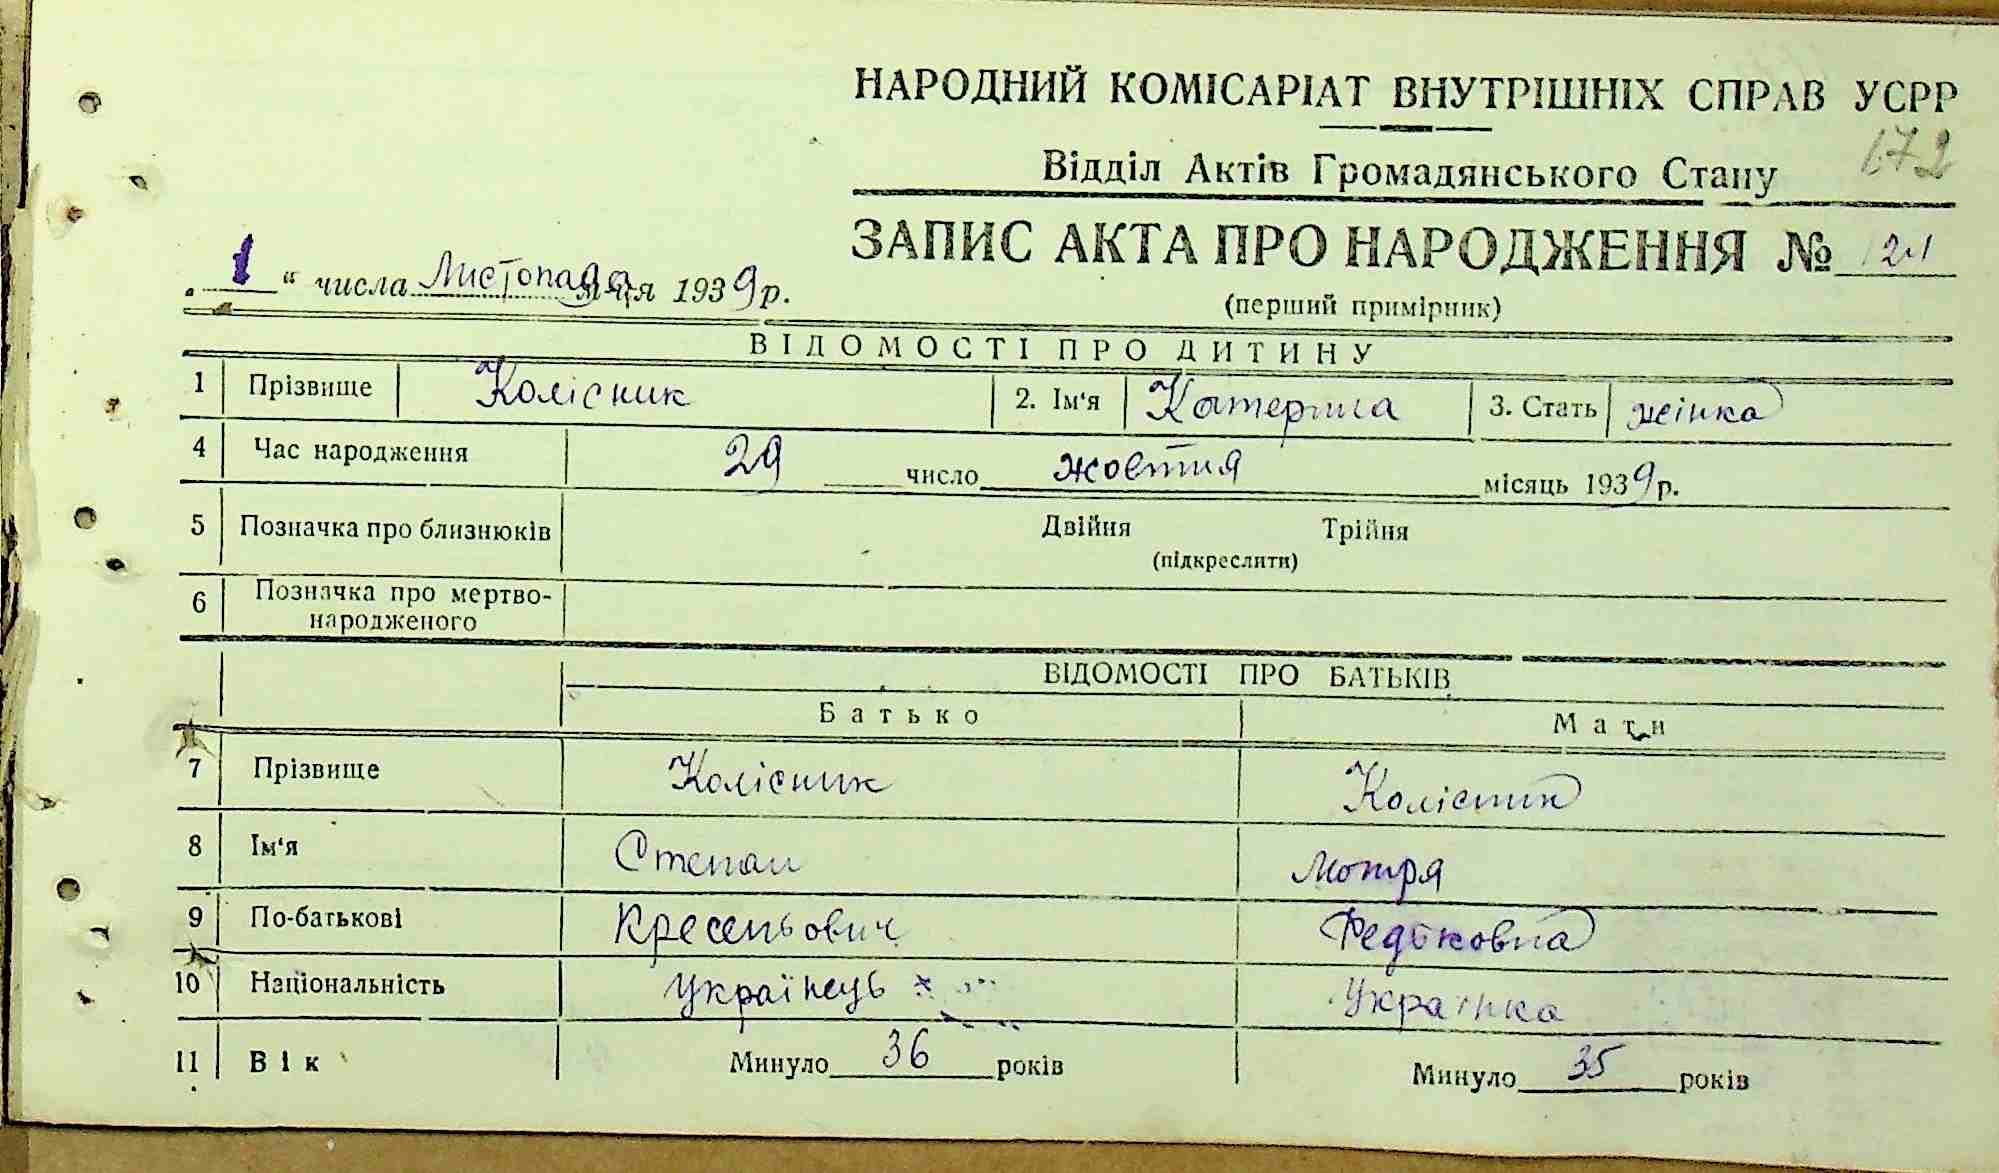 НАРОДНИЙ КОМІСАРІАТ ВНУТРІШНІХ СПРАВ УСРР
172
Відділ Актів Громадянського Стану
ЗАПИС АКТА ПРО НАРОДЖЕННЯ № 121
„ 1 “ числа Листопада м-ця 1939 р.
(перший примірник)
ВІДОМОСТІ ПРО ДИТИНУ
1 Прізвище Колісник 2. Ім'я Катерина 3. Стать жінка
4 Час народження 29 число жовтня місяць 1939 р.
5 Позначка про близнюків Двійня Трійня
(підкреслити)
6 Позначка про мертво-
народженого
ВІДОМОСТІ ПРО БАТЬКІВ
Батько Мати
7 Прізвище Колісник Колісник
8 Ім'я Степан Мотря
9 По-батькові Кресеньович Федьковна
10 Національність Українець Українка
11 Вік Минуло 36 років Минуло 35 років